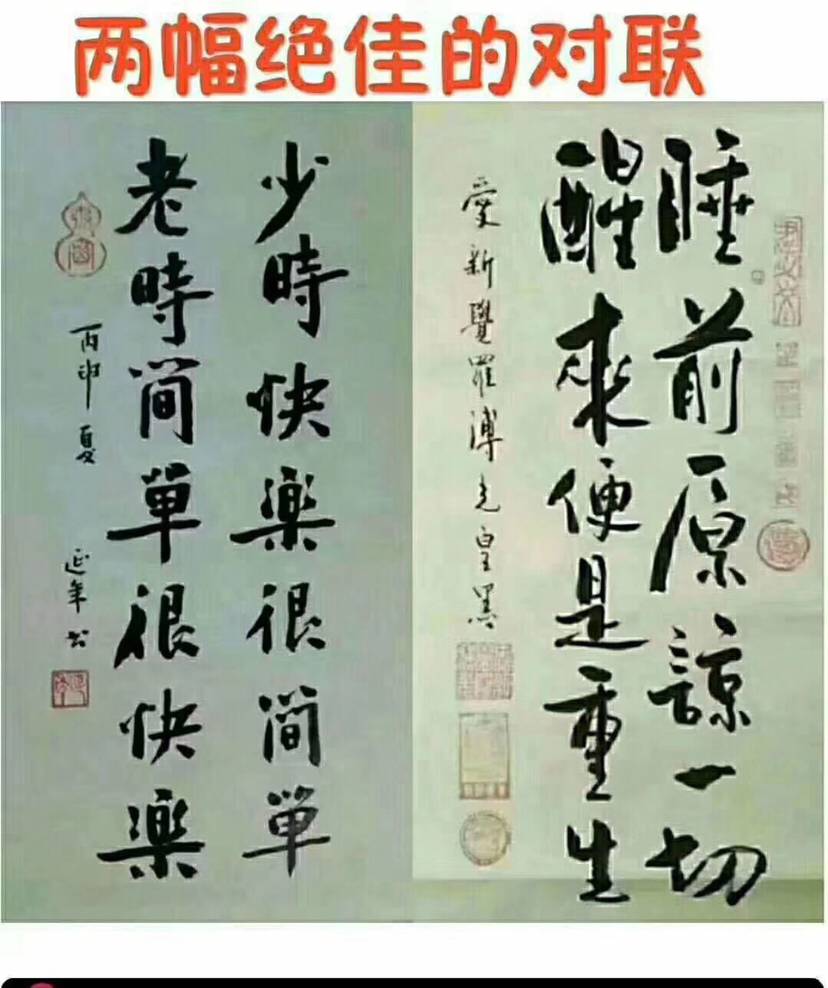 两幅绝佳的对联
睡前原諒一切
醒來便是重生
愛新覺羅溥光皇墨
少時快樂很简單
老時简單很快樂
丙申夏
延年书